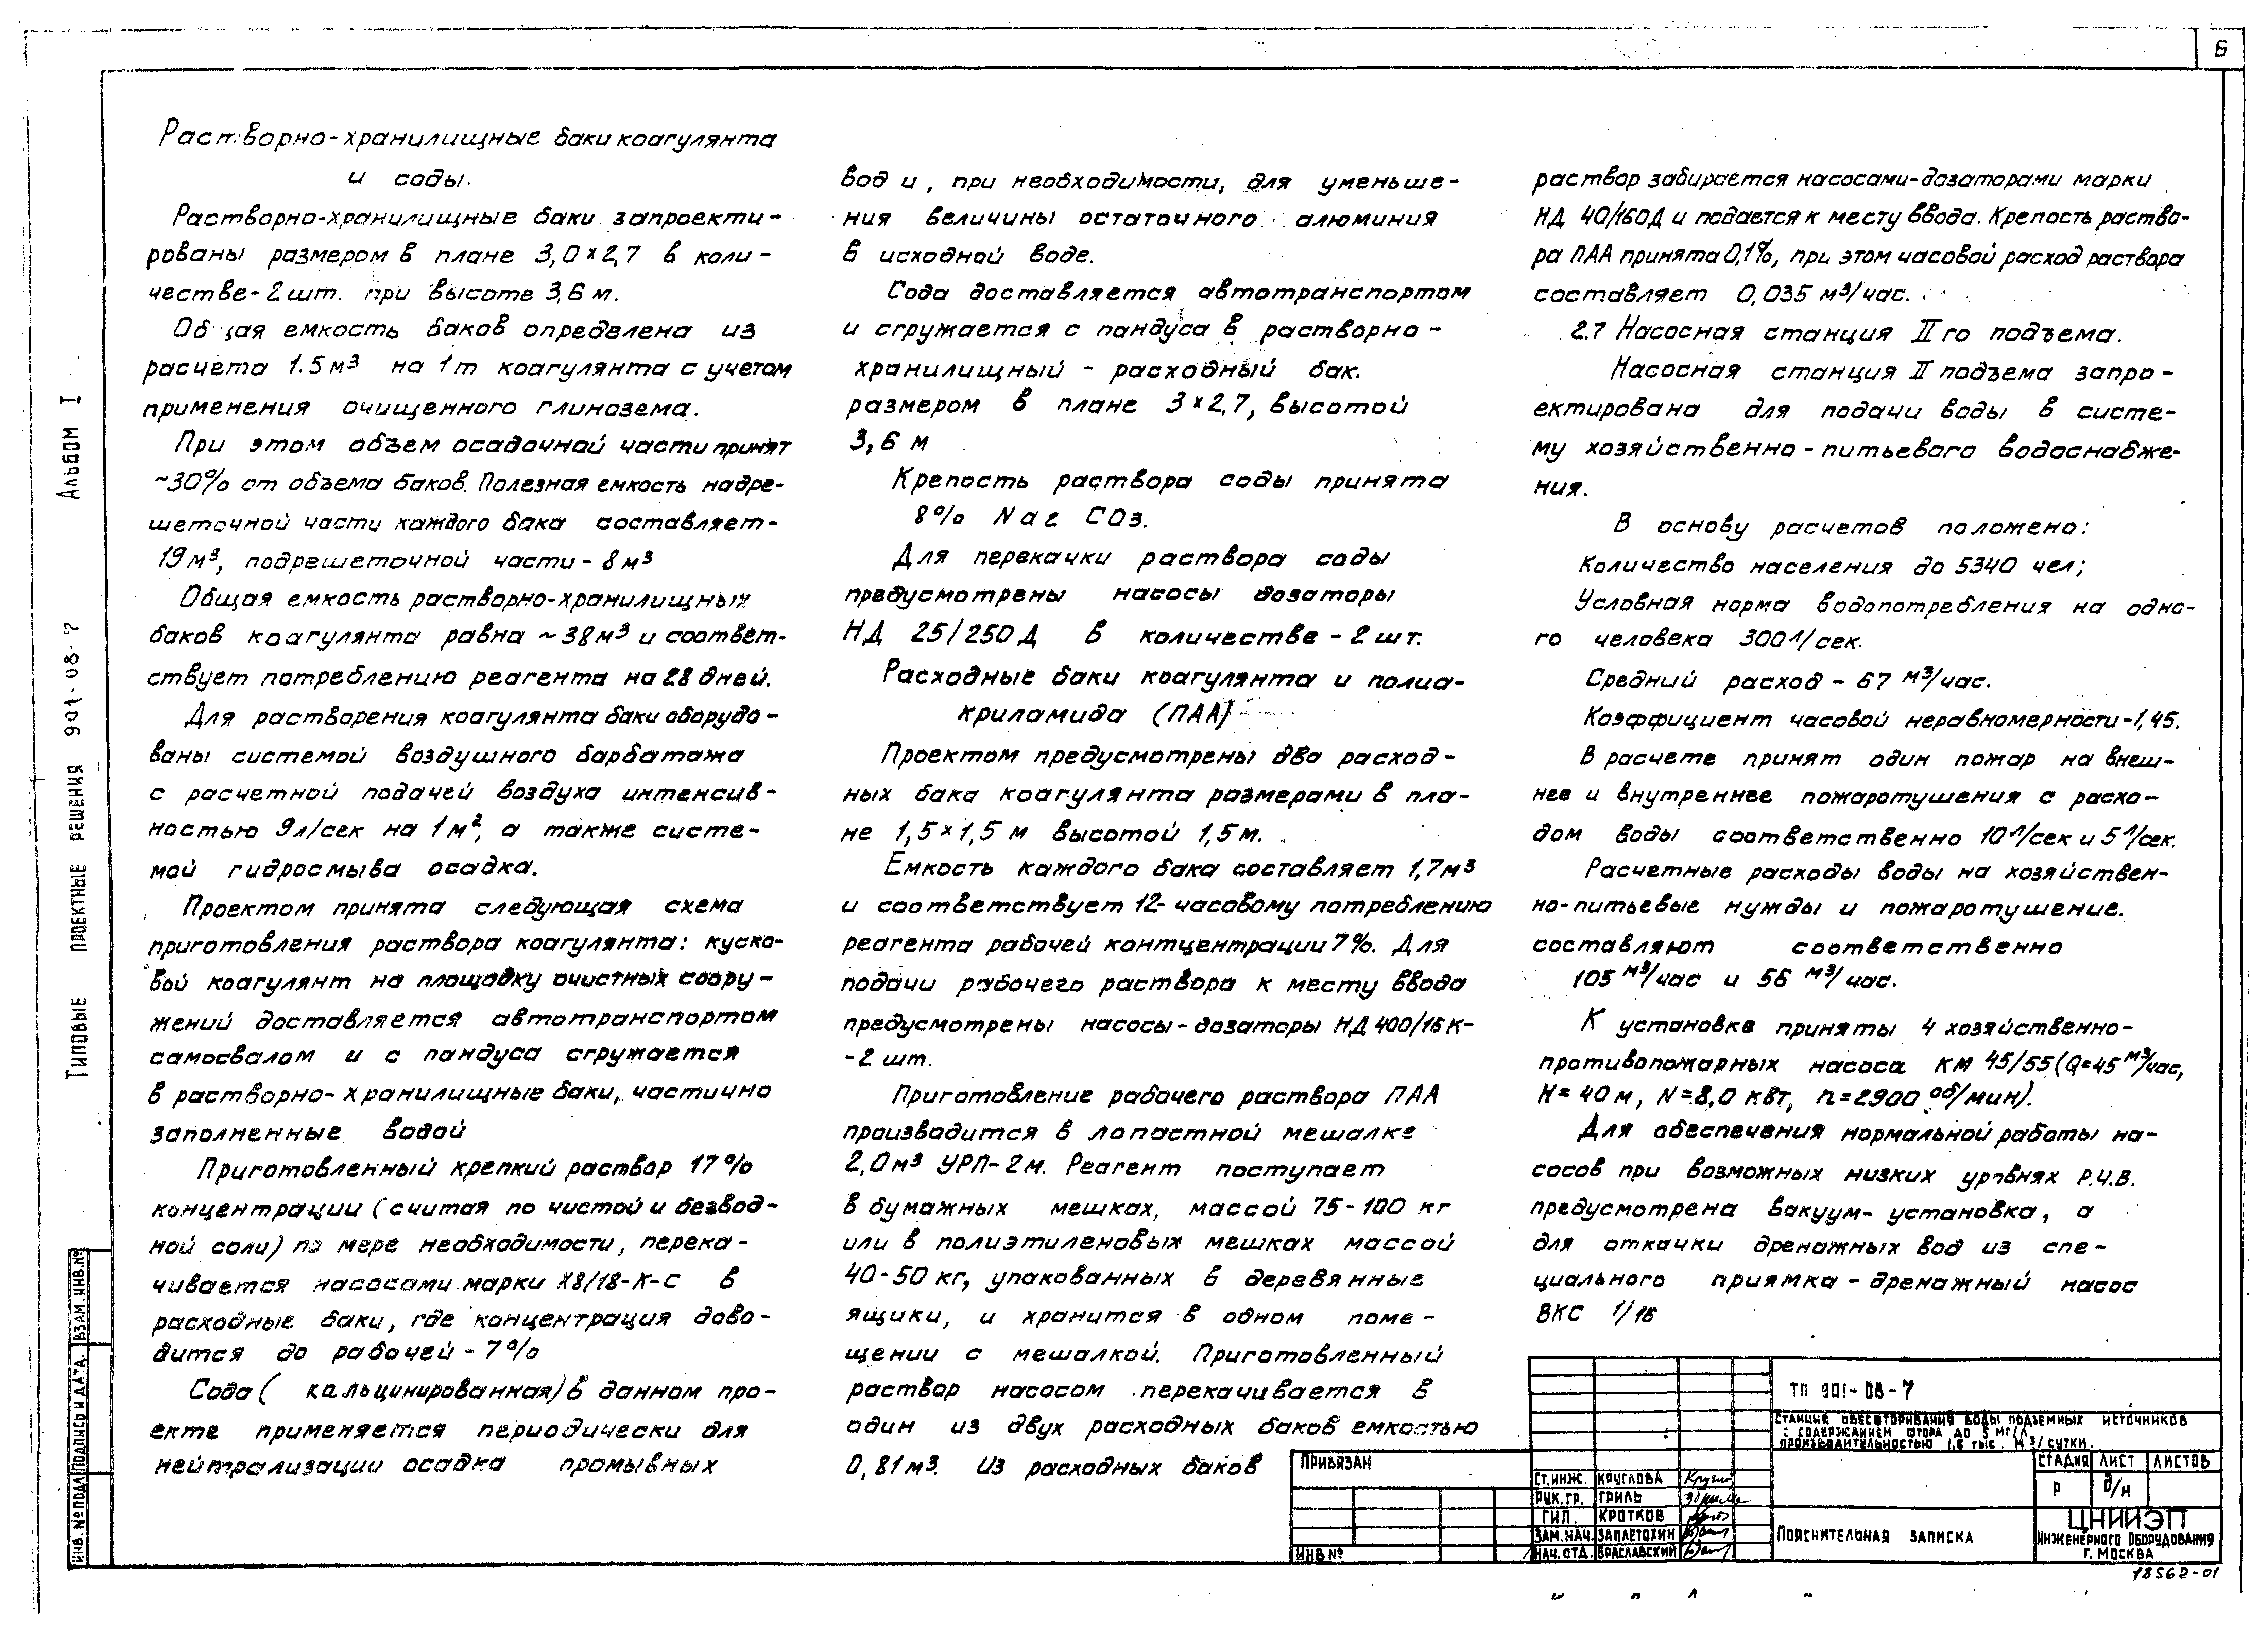 6
Растворно-хранилищные баки коагулянта
и соды.
Растворно-хранилищные баки запроекти-
рованы размером в плане 3,0×2,7 в коли-
честве-2шт. при высоте 3,6 м.
Общая емкость баков определена из
расчета 1.5м³ на 1т коагулянта с учетом
применения очищенного глинозема.
При этом объем осадочной части принят
~30% от объема баков. Полезная емкость надре-
шеточной части каждого бака составляет-
19м³, подрешеточной части - 8м³
Общая емкость растворно-хранилищных
баков коагулянта равна ~38м³ и соответ-
ствует потреблению реагента на 28 дней.
Для растворения коагулянта баки оборудо-
ваны системой воздушного барботажа
с расчетной подачей воздуха интенсив-
ностью 9л/сек на 1м², а также систе-
мой гидросмыва осадка.
Проектом принята следующая схема
приготовления раствора коагулянта: куско-
вой коагулянт на площадку очистных соору-
жений доставляется автотранспортом
самосвалом и с пандуса сгружается
в растворно-хранилищные баки, частично
заполненные водой
Приготовленный крепкий раствор 17%
концентрации (считая по чистой и безвод-
ной соли) по мере необходимости, перека-
чивается насосами марки Х8/18-К-С в
расходные баки, где концентрация дово-
дится до рабочей - 7%
Сода ( кальцинированная) в данном про-
екте применяется периодически для
нейтрализации осадка промывных
вод и, при необходимости, для уменьше-
ния величины остаточного алюминия
в исходной воде.
Сода доставляется автотранспортом
и сгружается с пандуса в растворно-
хранилищный - расходный бак.
размером в плане 3×2,7, высотой
3,6 м
Крепость раствора соды принята
8% Na2 CO3.
Для перекачки раствора соды
предусмотрены насосы дозаторы
НД 25/250 Д в количестве - 2 шт.
Расходные баки коагулянта и полиа-
криламида (ПАА)
Проектом предусмотрены два расход-
ных бака коагулянта размерами в пла-
не 1,5×1,5 м высотой 1,5м.
Емкость каждого бака составляет 1,7м³
и соответствует 12-часовому потреблению
реагента рабочей контцентрации 7%. Для
подачи рабочего раствора к месту ввода
предусмотрены насосы-дозаторы НД 400/16 К-
-2 шт.
Приготовление рабочего раствора ПАА
производится в лопастной мешалке
2,0м³ УРП-2м. Реагент поступает
в бумажных мешках, массой 75-100 кг
или в полиэтиленовых мешках массой
40-50 кг, упакованных в деревянные
ящики, и хранится в одном поме-
щении с мешалкой. Приготовленный
раствор насосом перекачивается в
один из двух расходных баков емкостью
0,81м³. Из расходных баков
раствор забирается насосами-дозаторами марки
НД 40/160Д и подается к месту ввода. Крепость раство-
ра ПАА принята 0,1%, при этом часовой расход раствора
составляет 0,035 м³/час.
2.7 Насосная станция IIго подъема.
Насосная станция II подъема запро-
ектирована для подачи воды в систе-
му хозяйственно-питьевого водоснабже-
ния.
В основу расчетов положено:
Количество населения до 5340 чел;
Условная норма водопотребления на одно-
го человека 300 л/сек.
Средний расход - 67 м³/час.
Коэффициент часовой неравномерности-1,45.
В расчете принят один пожар на внеш-
нее и внутреннее пожаротушения с расхо-
дом воды соответственно 10 л/сек и 5 л/сек.
Расчетные расходы воды на хозяйствен-
но-питьевые нужды и пожаротушение.
составляют соответственно
105 м³/час и 56 м³/час.
К установке приняты 4 хозяйственно-
противопожарных насоса КМ 45/55 (Q=45 м³/час,
Н=40м, N=8,0 квт, n=2900 об/мин).
Для обеспечения нормальной работы на-
сосов при возможных низких уровнях Р.Ч.В.
предусмотрена вакуум-установка, а
для откачки дренажных вод из спе-
циального приямка - дренажный насос
ВКС 1/16
Альбом I
Типовые проектные решения 901-08-7
ИНВ. № ПОДЛ. ПОДПИСЬ И ДАТА. ВЗАМ. ИНВ. №
ПРИВЯЗАН
ИНВ №
СТ.ИНЖ. КРУГЛОВА
РУК.ГР. ГРИЛЬ
ГИП. КРОТКОВ
ЗАМ.НАЧ. ЗАПЛЕТОХИН
НАЧ.ОТД. БРАСЛАВСКИЙ
ТП 901-08-7
СТАНЦИЕ ОБЕСФТОРИВАНИЯ ВОДЫ ПОДЗЕМНЫХ ИСТОЧНИКОВ
С СОДЕРЖАНИЕМ ФТОРА ДО 5 МГ/Л
ПРОИЗВОДИТЕЛЬНОСТЬЮ 1,6 ТЫС. М³/СУТКИ.
СТАДИЯ ЛИСТ ЛИСТОВ
Р
ПОЯСНИТЕЛЬНАЯ ЗАПИСКА
ЦНИИЭП
ИНЖЕНЕРНОГО ОБОРУДОВАНИЯ
Г. МОСКВА
18562-01